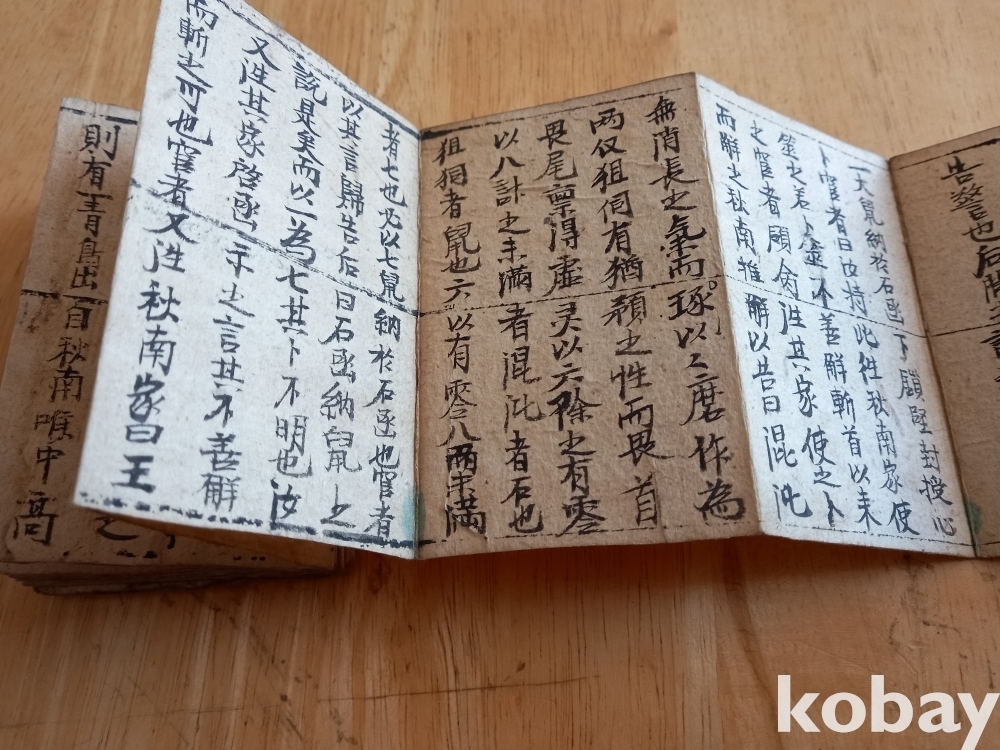 一大鼠納於石函
堅封授
卜官者曰汝持此往秋南家使
筮之若卜筮不善解斬首以来
之官者領命往其家使之卜
而解之秋南推解以告曰混沌
無消長之氣而琢以之磨作為
両仅狙伺有猶之性而畏首
畏尾禀得虛灵以六除之有零
以八計之未滿者混沌者石也
狙狗者鼠也六以有零八両未滿
者七也必以七鼠納於石函也官者
以其言歸告后曰石函納鼠之
說是矣而以一為七其卜不明也汝
又往其家啓函示之言其不善解
而斬之可也官者又往秋南家曰王
則有青鳥出自秋南喉中高
kobay